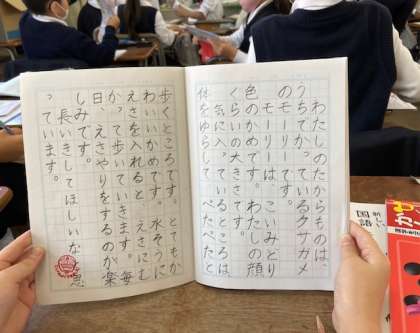 わたしのたからものは、
うちでかっているクサガメ
のモーリーです。
モーリーは、こいみどり
色のかめです。わたしの顔
くらいの大きさです。
気に入っているところは、
体をゆらしてぺたぺたと
歩くところです。とてもか
わいいかめです。水そうに
えさを入れると、えさにむ
かって歩いていきます。毎
日、えさやりをするのが楽
しみです。
長いきしてほしいなと思
っています。